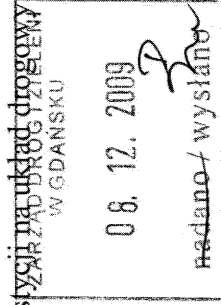 stycji na układ drogowy
ZARZĄD DRÓG I ZIELENI
W GDAŃSKU
08. 12. 2009
nadano / wysłano